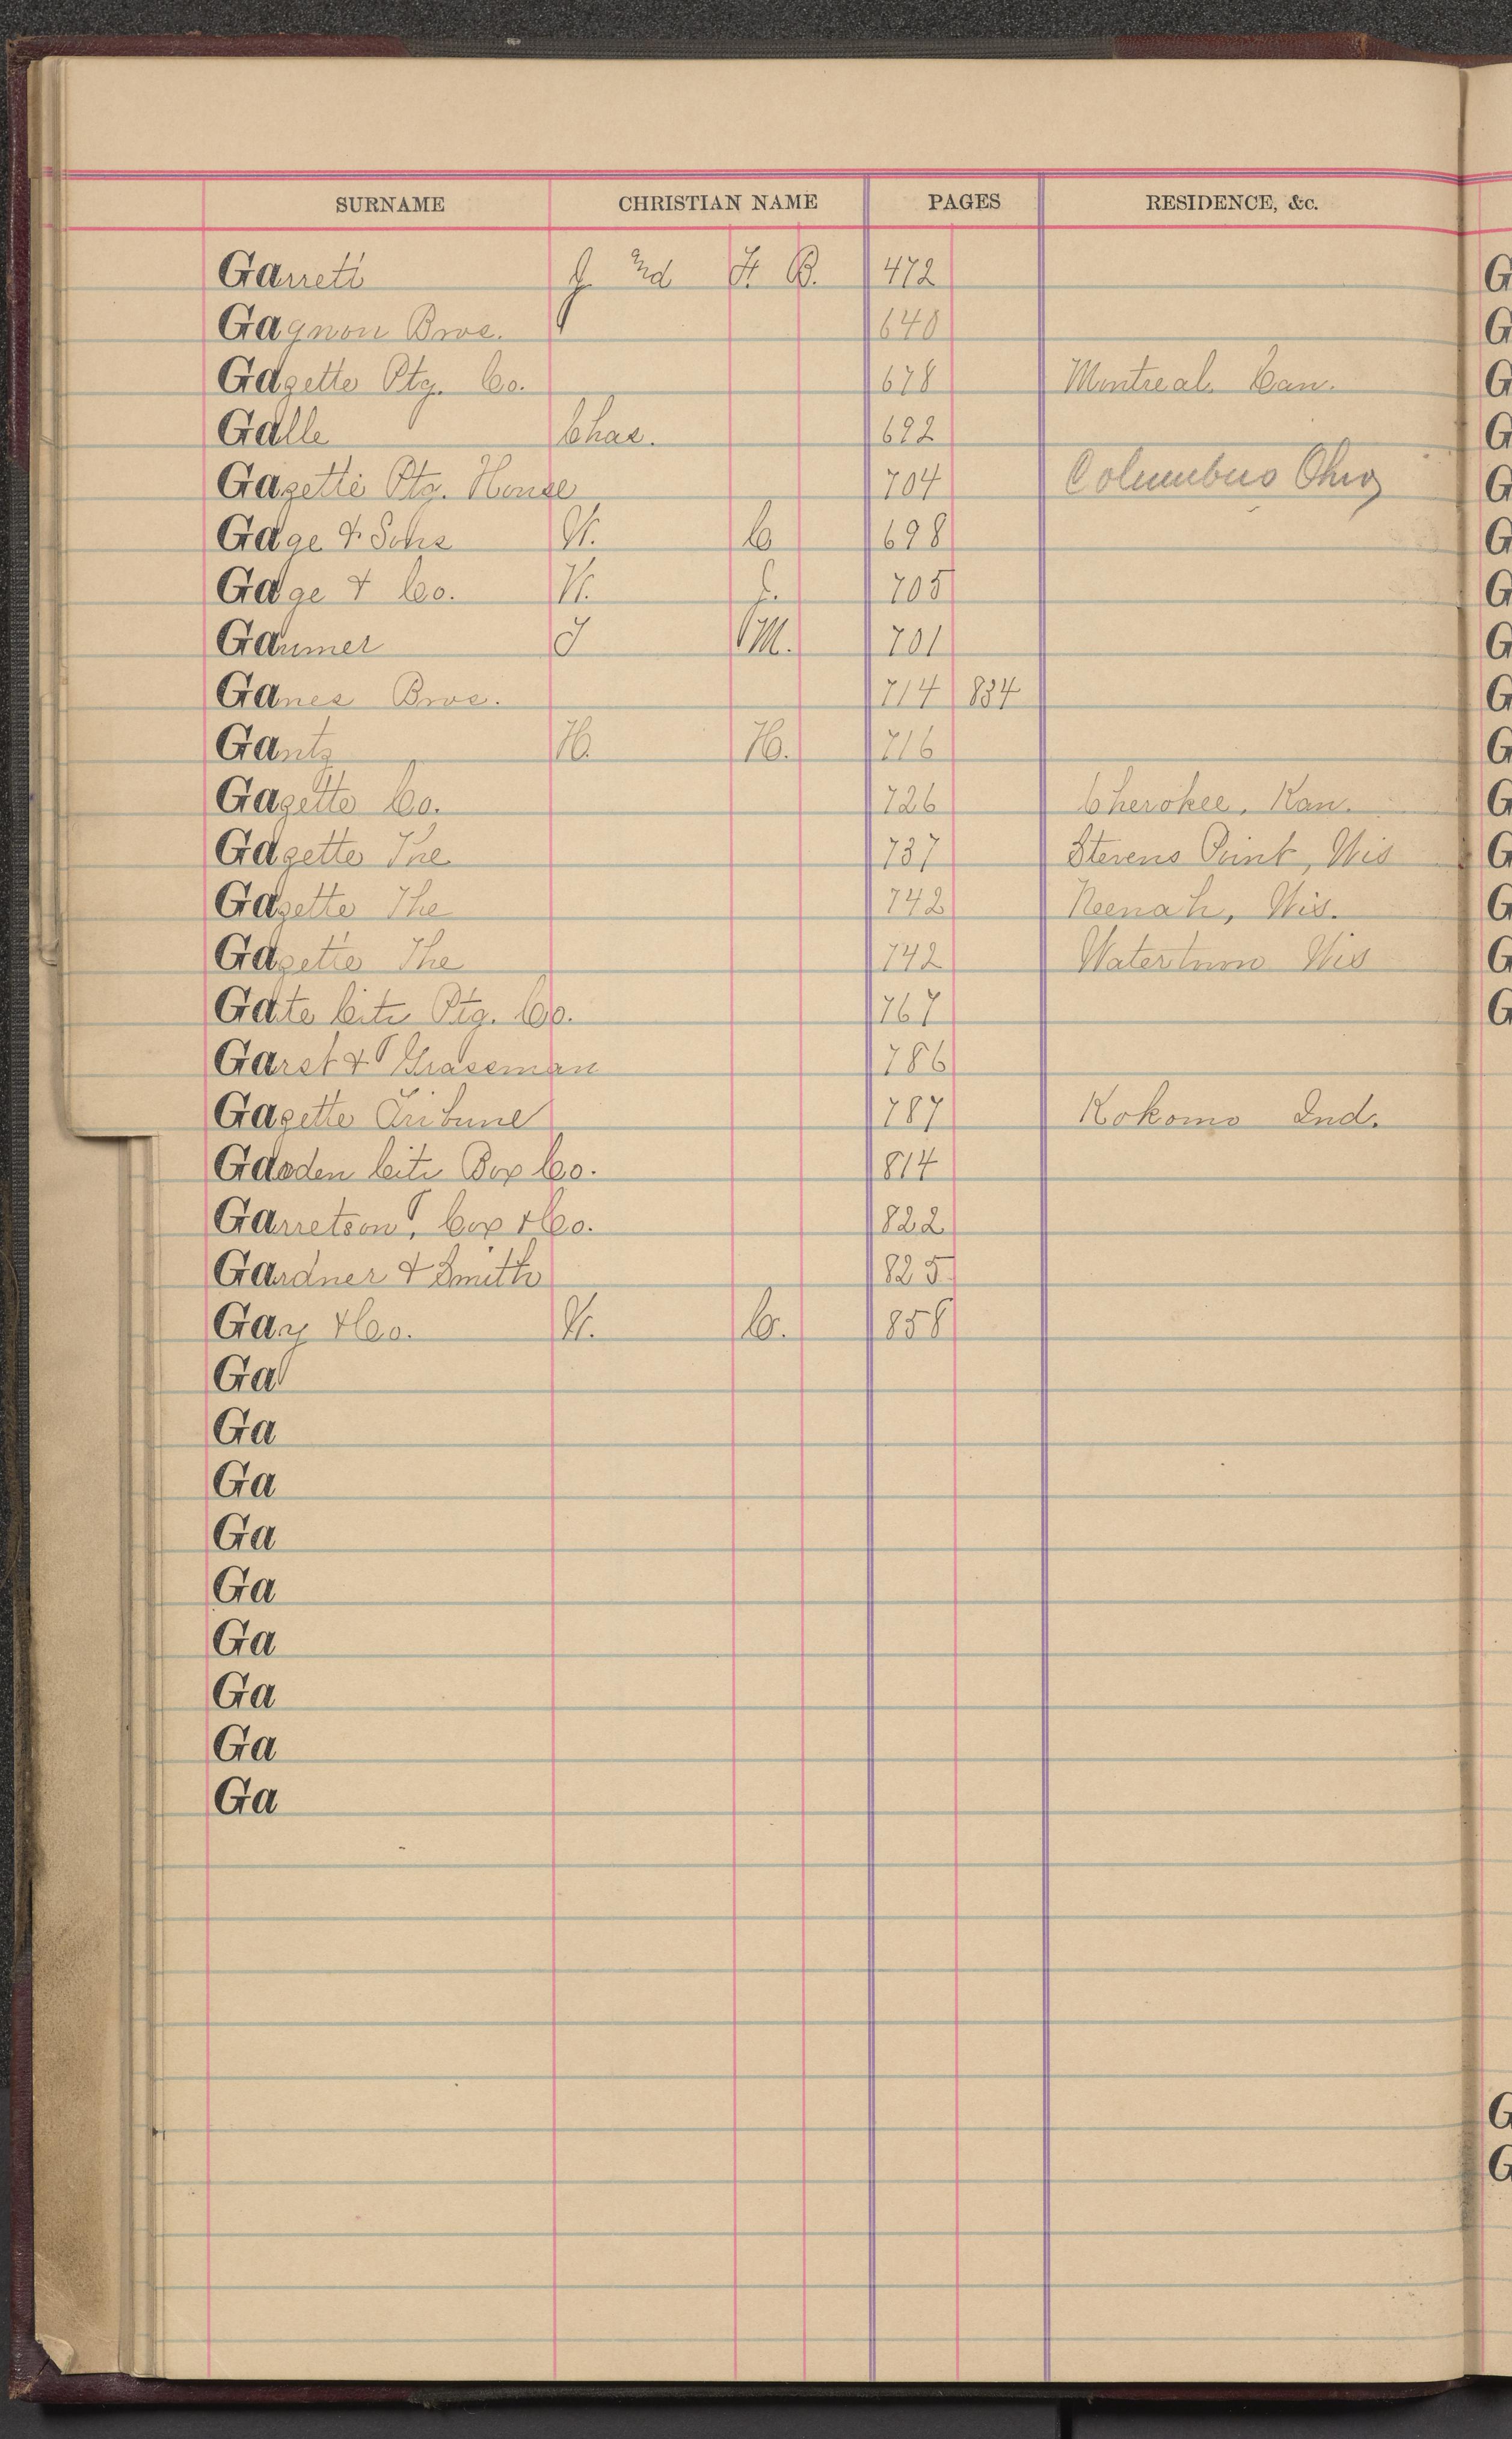 SURNAME CHRISTIAN NAME PAGES RESIDENCE, &c.
Garrett J 2nd F B. 472
Gagnon Bros. 640
Gazette Ptg. Co. 678 Montreal. Can.
Galle Chas. 692
Gazette Ptg. House 704 Columbus Ohio
Gage & Sons W. C 698
Gage & Co. W. 705
Gaumer J M. 701
Ganes Bros. 714 834
Gantz H. H. 716
Gazette Co. 726 Cherokee, Kan.
Gazette The 737 Stevens Point, Wis
Gazette The 742 Neenah, Wis.
Gazette The 742 Watertown Wis
Gate City Ptg. Co. 767
Garst & Graseman 786
Gazette Tribune 787 Kokomo Ind.
Gadsden City Box Co. 814
Garretson, Cox & Co. 822
Gardner & Smith 825
Gay & Co. W. C. 858
Ga
Ga
Ga
Ga
Ga
Ga
Ga
Ga
Ga